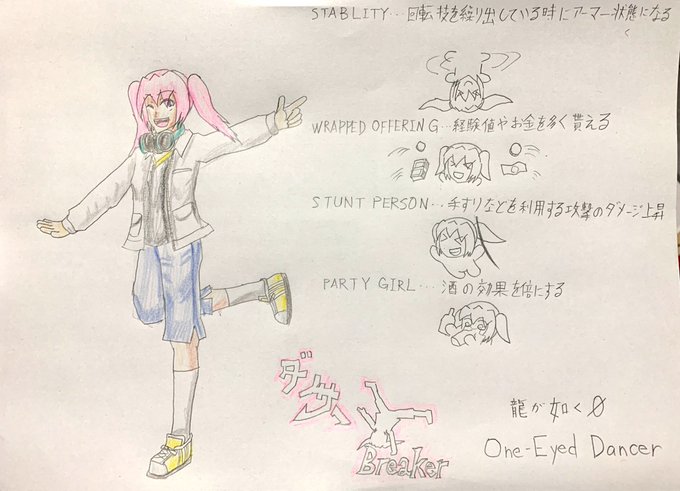 STABLITY…回転技を繰り出している時にアーマー状態になる
WRAPPED OFFERING…経験値やお金を多く貰える
STUNT PERSON…手すりなどを利用する攻撃のダメージ上昇
PARTY GIRL……酒の効果を倍にする
ダサ
Breaker
龍が如く0
One-Eyed Dancer